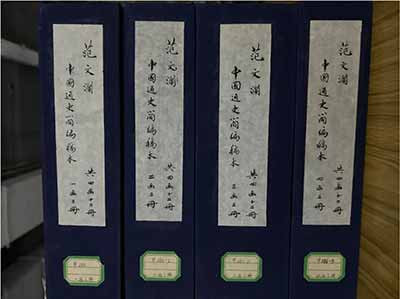 范文澜
中国通史简编稿本
共四函十二册
一函三册
范文澜
中国通史简编稿本
共四函十二册
二函三册
范文澜
中国通史简编稿本
共四函十二册
三函三册
范文澜
中国通史简编稿本
共四函十二册
四函三册